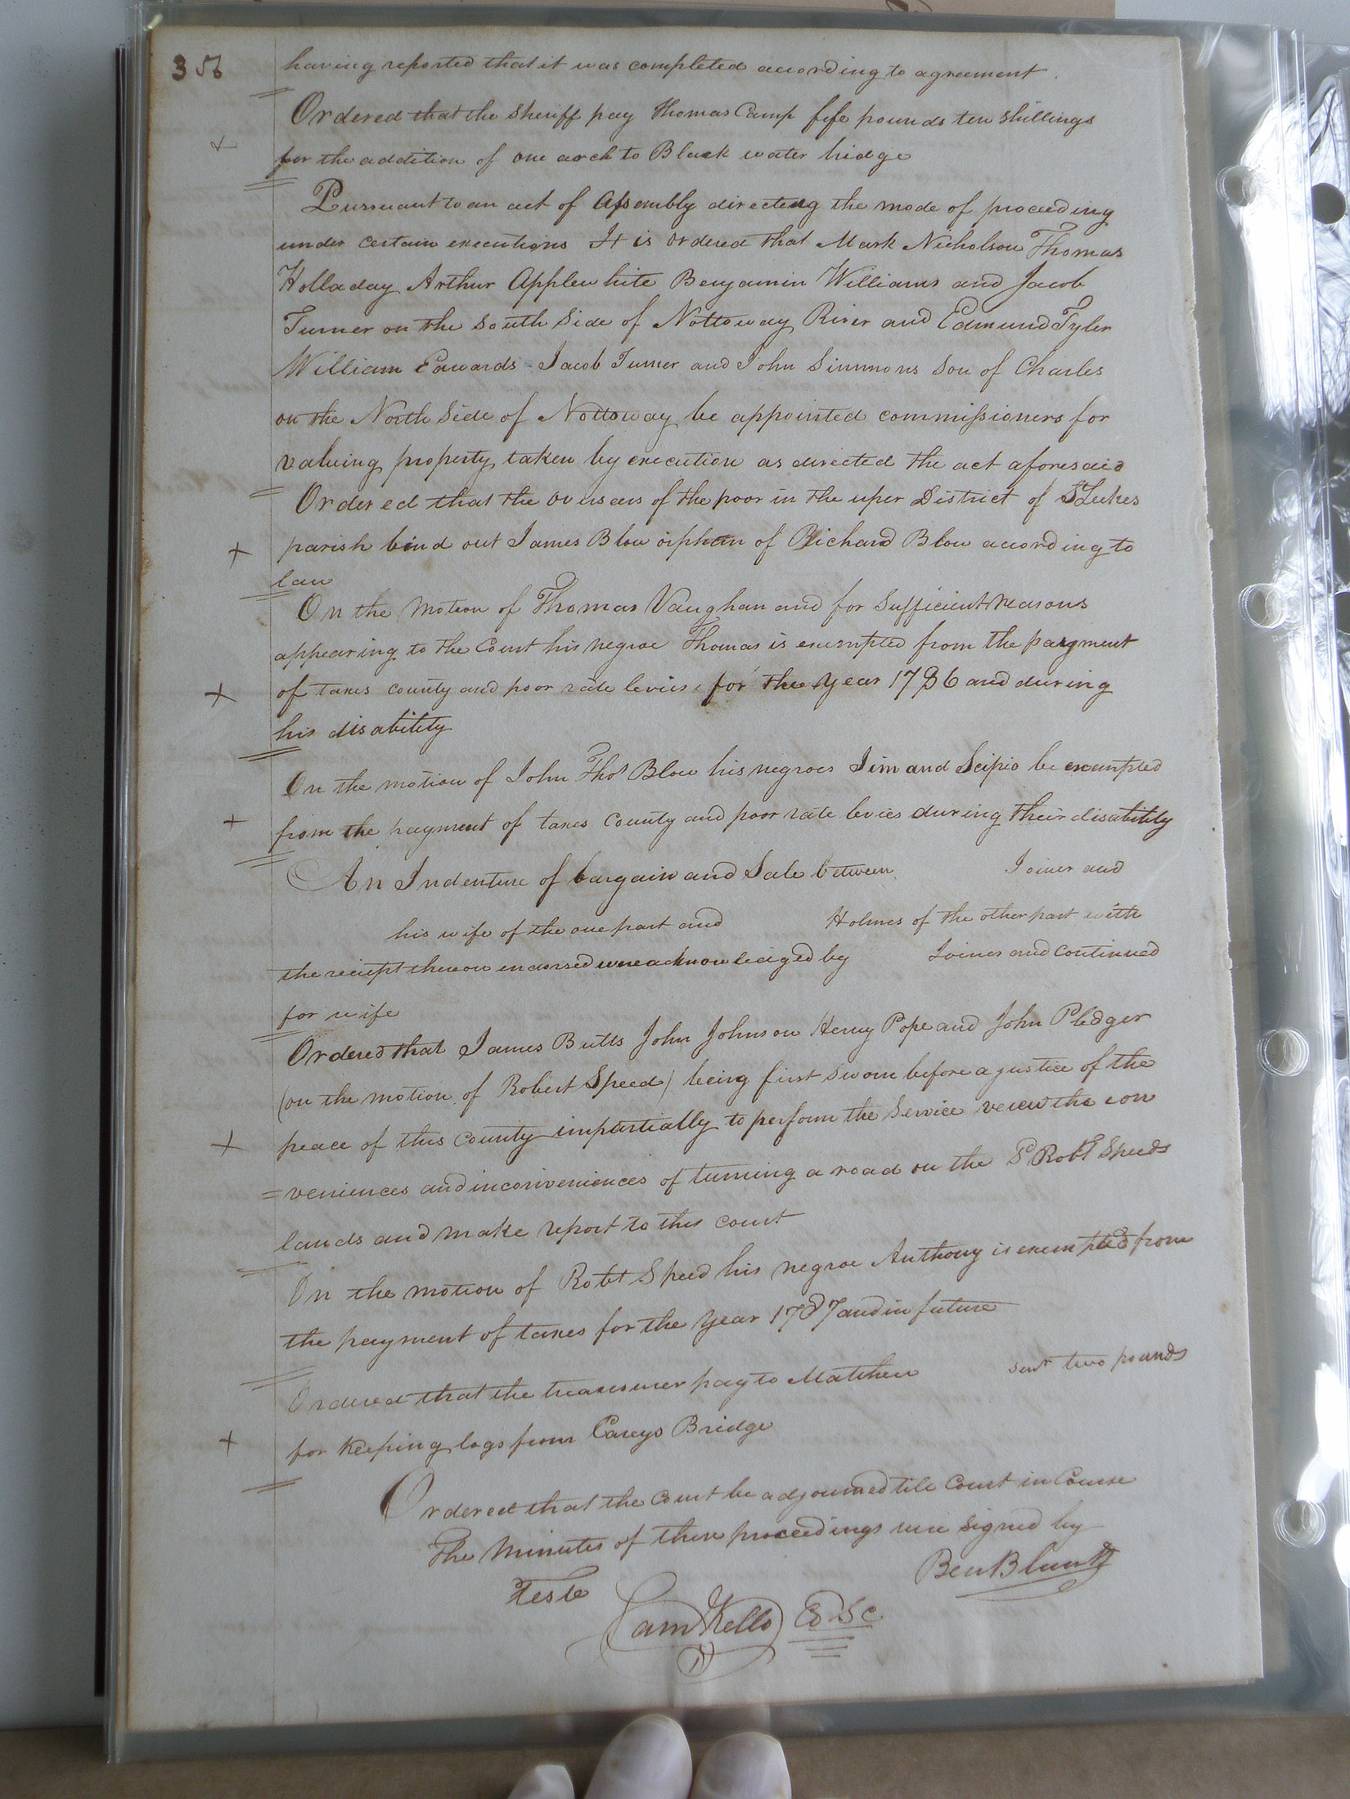 356
having reported that it was completed according to agreement
Ordered that the Sheriff pay Thomas Camp fife pounds ten shillings
for the addition of one arch to Black water bridge
Pursuant to an act of Assembly directing the mode of proceeding
under certain executions It is ordered that Mark Nicholson Thomas
Holladay Arthur Applewhite Benjamin Williams and Jacob
Turner on the South Side of Nottoway River and Edmund Tyler
William Edwards Jacob Turner and John Simmons Son of Charles
on the North Side of Nottoway be appointed commissioners for
valuing property taken by execution as directed the act aforesaid
Ordered that the overseers of the poor in the uper District of St Lukes
parish bind out James Blow orphan of Richard Blow according to
law
On the Motion of Thomas Vaughan and for Sufficient reasons
appearing to the Court his negroe Thomas is exempted from the payment
of taxes county and poor rate levies for the Year 1786 and during
his disability
On the motion of John Thos Blow his negroes Jim and Scipio be exempted
from the payment of taxes County and poor rate levies during their disability
An Indenture of bargain and Sale between Joiner and
his wife of the one part and Holmes of the other part with
the reciept thereon endorsed were acknowledged by Joiner and Continued
for wife
Ordered that James Butts John Johnson Henry Pope and John Pledger
(on the motion of Robert Speed) being first sworn before a justice of the
peace of this County impartially to perform the Service veiew the con
=veniences and inconveniences of turning a road on the Sd Robt Speeds
lands and make report to this court
On the motion of Robt Speed his negroe Anthony is exempted from
the payment of taxes for the Year 1787 and in future
Ordered that the treasurer pay to Matthew senr two pounds
for Keeping logs from Careys Bridge
Ordered that the Court be adjourned tile Court in Course
The Minutes of these proceedings were Signed by
Ben Blunt
Teste
Sam Kello